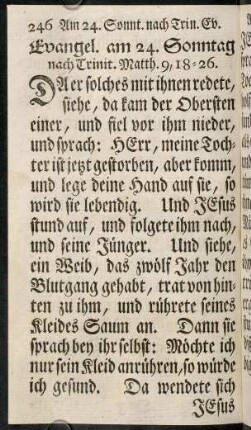 246 Am 24. Sonnt. nach Trin. Ev.
Evangel. am 24. Sonntag
nach Trinit. Matth. 9, 18-26.
DAer solches mit ihnen redete,
siehe, da kam der Obersten
einer, und fiel vor ihm nieder,
und sprach: HErr, meine Toch-
ter ist jetzt gestorben, aber komm,
und lege deine Hand auf sie, so
wird sie lebendig. Und JEsus
stund auf, und folgete ihm nach,
und seine Jünger. Und siehe,
ein Weib, das zwölf Jahr den
Blutgang gehabt, trat von hin-
ten zu ihm, und rührete seines
Kleides Saum an. Dann sie
sprach bey ihr selbst: Möchte ich
nur sein Kleid anrühren, so würde
ich gesund. Da wendete sich
JEsus